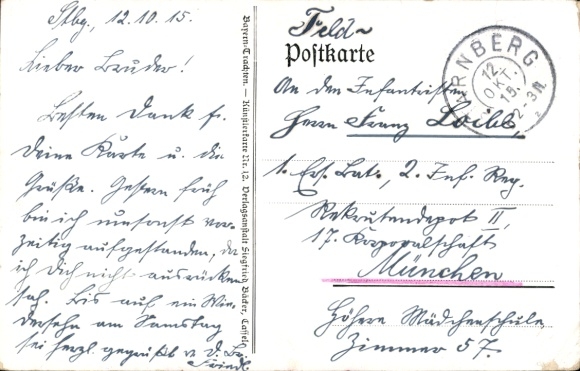 Stbg., 12.10.15.
Lieber Bruder!
Besten Dank f.
Deine Karte u. die
Grüße. Gestern früh
bin ich umsonst vor-
zeitig aufgestanden, da
ich Dich nicht ausrücken
sah. Bis auf ein Wie-
dersehn am Samstag
sei herzl. gegrüßt v. D. Br.
Friedl.
Bayern-Trachten. — Künstlerkarte Nr. 12. Verlagsanstalt Siegfried Bäder, Cassel.
Feld-
Postkarte
NÜRNBERG
12.
OKT.
15.
2-3N
An den Infanteristen
Herrn Franz Loibl,
1. Ers. Bat., 2. Inf. Reg.
Rekrutendepot II,
17. Korporalschaft
München
Höhere Mädchenschule
Zimmer 57.